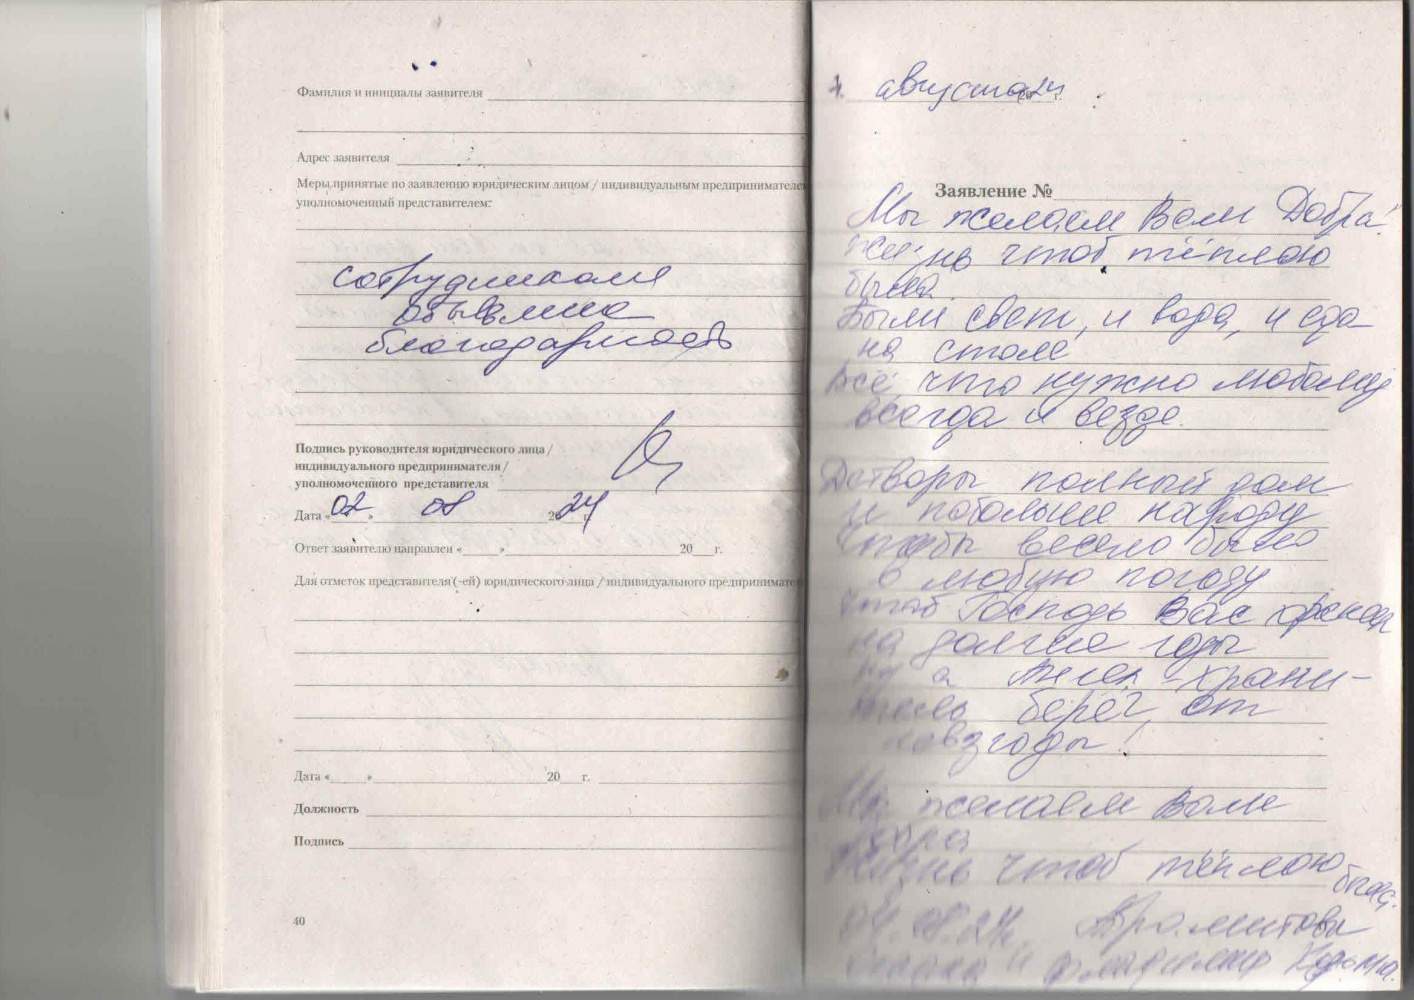 Фамилия и инициалы заявителя
Адрес заявителя
Меры, принятые по заявлению юридическим лицом / индивидуальным предпринимателе
уполномоченный представителем:
сотрудникам
объявлена
благодарность
Подпись руководителя юридического лица /
индивидуального предпринимателя /
уполномоченного представителя
Дата «02» 08 2024 г.
Ответ заявителю направлен « » 20 г.
Для отметок представителя (-ей) юридического лица / индивидуального предпринимател
Дата « » 20 г.
Должность
Подпись
40
августа 2024 г.
Заявление №
Мы желаем Вам Добра!
жизнь чтоб тёплою
была.
Были свет, и вода, и еда
на столе
Всё, что нужно любому
всегда и везде.
Детворы полный дом
и побольше народу
Чтобы весело было
в любую погоду
Чтоб Господь Вас хранил
на долгие годы
а Ангел-храни-
тель берёг от
невзгоды!
Мы желаем Вам
добра
Жизнь чтоб тёплою
была.
04.08.24
и